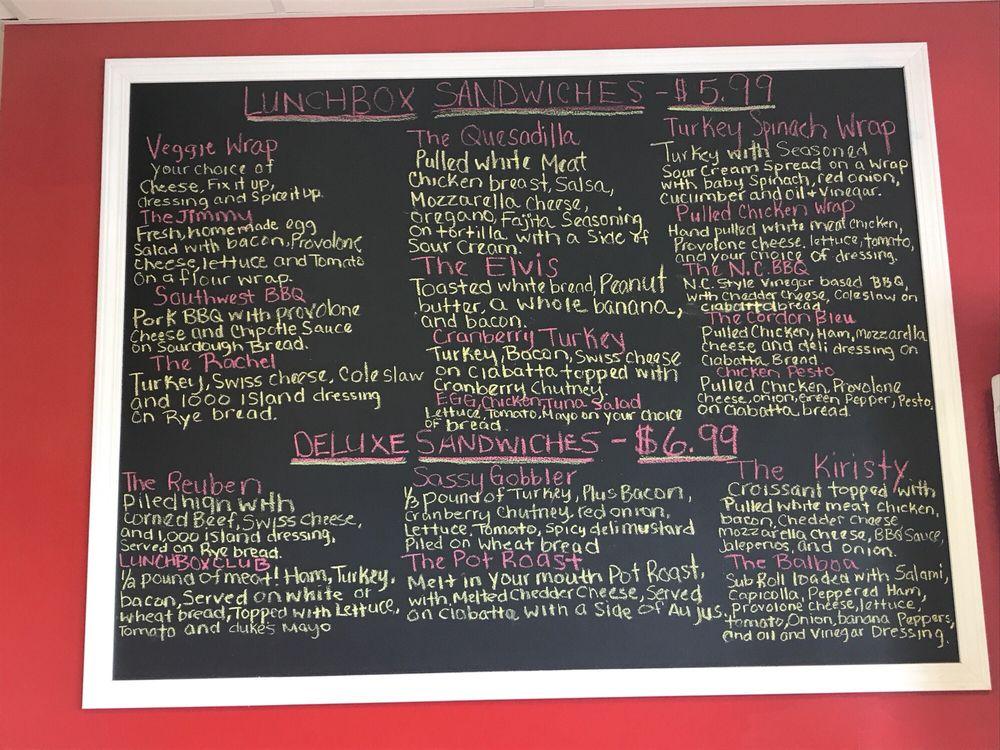 LUNCHBOX SANDWICHES - $5.99
Veggie Wrap
your choice of
Cheese, Fix it up,
dressing and spice it up.
The Jimmy
Fresh, homemade egg
Salad with bacon, Provolone
cheese, lettuce and Tomato
on a flour wrap.
Southwest BBQ
Pork BBQ with provolone
Cheese and Chipotle Sauce
on Sourdough Bread.
The Rachel
Turkey, Swiss cheese, Cole slaw
and 1000 island dressing
on Rye bread.
The Quesadilla
Pulled white Meat
Chicken breast, Salsa,
Mozzarella Cheese,
oregano, Fajita Seasoning
on tortilla with a Side of
Sour Cream.
The Elvis
Toasted white bread, Peanut
butter, a whole banana,
and bacon.
Cranberry Turkey
Turkey, Bacon, Swiss cheese
on Ciabatta topped with
Cranberry Chutney
EGG, Chicken, Tuna Salad
Lettuce, Tomato, Mayo on your choice
OF bread.
Turkey Spinach Wrap
Turkey with Seasoned
Sour Cream Spread on a wrap
with baby Spinach, red onion,
cucumber and oil + Vinegar.
Pulled Chicken Wrap
Hand pulled white meat chicken,
Provolone cheese, lettuce, tomato,
and your choice of dressing.
The N.C. BBQ
N.C. Style Vinegar based BBQ,
with Chedder Cheese, Coleslaw on
ciabatta bread.
The Cordon Bleu
Pulled Chicken, Ham, mozzarella
cheese and deli dressing on
Ciabatta Bread.
Chicken Pesto
Pulled Chicken, Provolone
cheese, onion, Green Pepper, Pesto,
on Ciabatta bread.
DELUXE SANDWICHES - $6.99
The Reuben
Piled high with
Corned Beef, Swiss cheese,
and 1,000 island dressing,
Served on Rye bread.
LUNCHBOX CLUB
1/2 pound of meat! Ham, Turkey,
bacon, Served on white or
wheat bread, Topped with Lettuce,
Tomato and dukes Mayo
Sassy Gobbler
1/3 pound of Turkey, Plus Bacon,
Cranberry Chutney, red onion,
Lettuce, Tomato, Spicy deli mustard
Piled on wheat bread
The Pot Roast
Melt in your mouth Pot Roast,
with Melted Chedder Cheese, Served
on Ciabatta with a Side of Au Jus.
The Kiristy
Croissant topped with
Pulled white meat chicken,
bacon, Chedder cheese
mozzarella cheese, BBQ Sauce,
Jalepenos, and onion.
The Balboa
Sub Roll loaded with Salami,
Capicolla, Peppered Ham,
Provolone cheese, lettuce,
tomato, Onion, banana Peppers,
and oil and Vinegar Dressing.